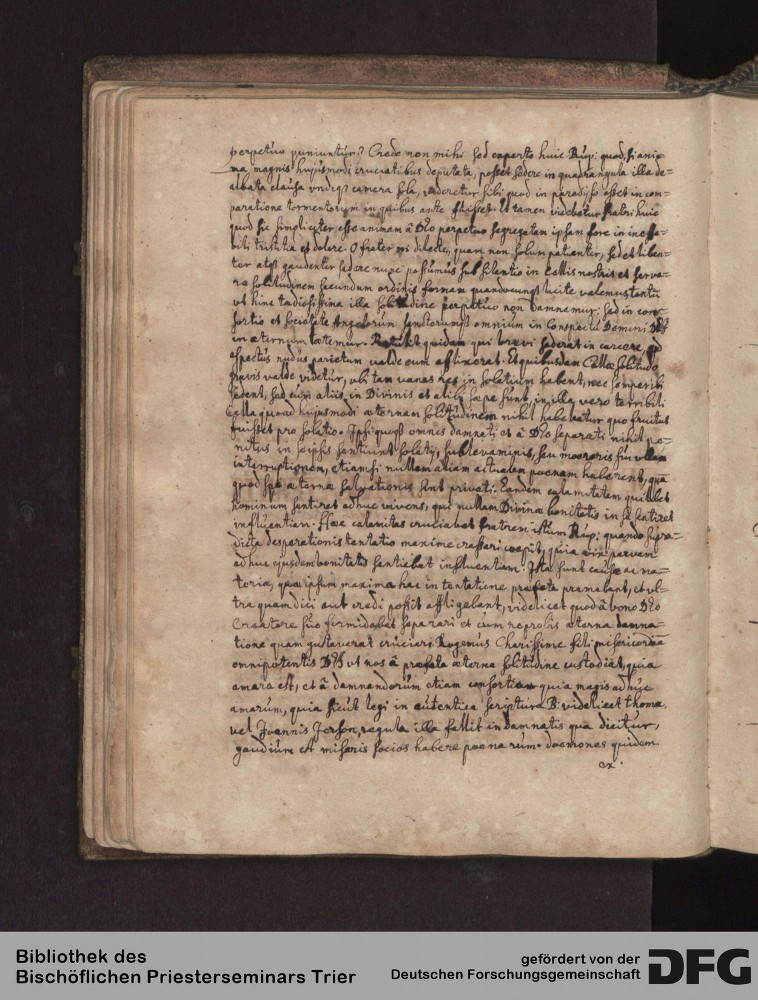 perpetuo puniuntur? Crede non mihi sed experto huic Rup: quod, si ani-
ma, magnis hujusmodi cruciatibus deputata, posset sedere in quadrangula illa de=
albata clausa undiq3 camera sola, videretur sibi quod in paradyso esset in com-
paratione tormentorum in quibus ante fuisset. et tamen videbatur fratri huic
quod sic simpliciter esse animam â Deo perpetuo segregatam ipsam fore in ineffa=
bili tristitia et dolore. O frater mi dilecte, quam non solum patienter, sed et liben=
ter atq3 gaudenter sedere nunc possumus sub silentio in Cellis nostris et serva=
re solitudinem secundum ordinis formam quandocunq3 licite valemus tantum
ut hinc tadiosissima illa solitudine perpetuo non damnemur: sed in con-
sortio et societate Angelorum Sanctorumq3 omnium in Conspectu Domini
in æternum lætemur. Retulit quidam qui brevi sederat in carcere,
aspectus nudus parietum valde eum afflixerat. Et quibusdam Cellæ solitudo
gravis valde videtur, ubi tam varias res in solatium habent, nec semper ibi
sedent, sed cum aliis in Divinis et alibi sæpe sunt, in illa vero terribili
Cella quoad hujusmodi æternam solitudinem nihil habebatur quo fruitus
fuisset pro solatio. Ipsi quoq3 omnes damnati et â Deo separati nihil pe=
nitus in seipsis sentiunt solatij, sublevaminis, seu mæroris sui ullam
interruptionem, etiamsi nullam aliam actualem poenam haberent, quia
quod spe æternæ salvationis sint privati. Eandem calamitatem quilibet
hominum sentiret adhuc vivens, qui nullam Divinæ bonitatis in se sentiret
influentiam. Hæc calamitas cruciabat fratrem istum Rup: quando supra=
dicta desperationis tentatio maxime crassari coepit, quia vix parvam
adhuc ejusdem bonitatis sentiebat influentiam. Istæ sunt causæ ac na=
toria, quæ ipsum maxima hac in tentatione præfata premebant, et ul=
tra quam dici aut credi possit affligebant, videlicet quod â bono Deo
Creatore suo formidabat separari et cum reprobis æterna damna=
tione quam gustaverat cruciari. Rogemus Charissime fili misericordiam
omnipotentis Dei ut nos â præfata æterna solitudine custodiat, quia
amara est, et â damnandorum etiam consortio quia magis adhuc
amarum, quia sicut legi in autentica scriptura B: videlicet Thomæ
vel Joannis Jerson, regula illa fallit in damnatis qua dicitur,
gaudium est miseris socios habere poenarum. dæmones quidem
ex
Bibliothek des
Bischöflichen Priesterseminars Trier
gefördert von der
Deutschen Forschungsgemeinschaft
DFG